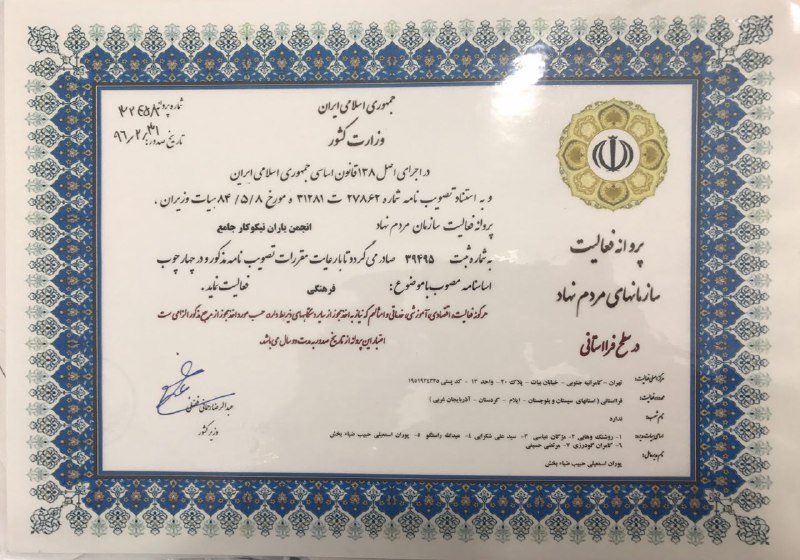 جمهوری اسلامی ایران
وزارت کشور
شماره پروانه: ۴۲۶۵۸
تاریخ صدور: ۹۶/۲/۳۱
در اجرای اصل ۱۳۸ قانون اساسی جمهوری اسلامی ایران
و به استناد تصویب نامه شماره ۲۷۸۶۲ ت ۳۱۲۸۱ ه مورخ ۸۴/۵/۸ هیات وزیران ،
پروانه فعالیت سازمان مردم نهاد انجمن یاران نیکوکار جامع
به شماره ثبت ۳۹۴۹۵ صادر می گردد تا با رعایت مقررات تصویب نامه مذکور و در چهارچوب
اساسنامه مصوب با موضوع : فرهنگی فعالیت نماید .
هرگونه فعالیت اقتصادی، آموزشی، خدماتی و امثالهم که نیاز به اخذ مجوز از سایر دستگاههای ذیربط دارد حسب مورد اخذ مجوز از مرجع مذکور الزامی ست
اعتبار این پروانه از تاریخ صدور به مدت دو سال می باشد.
عبدالرضا رحمانی فضلی
وزیر کشور
پروانه فعالیت
سازمانهای مردم نهاد
در سطح فرااستانی
مرکز اصلی فعالیت: تهران - کامرانیه جنوبی - خیابان بیات - پلاک ۲۰- واحد ۱۲ - کد پستی ۱۹۵۱۹۲۴۳۴۵
محدوده فعالیت: فرااستانی ( استانهای سیستان و بلوچستان - ایلام - کردستان - آذربایجان غربی )
نام شعبه: ندارد
اسامی هیات مدیره: ۱- روشنک وهابی ۲- مژگان عباسی ۳- سید علی شکرایی ۴- عبدالله راستگو ۵- پوران اسمعیلی حبیب ضیاء بخش
۶- کامران گودرزی ۷- مرتضی حسینی
نام مدیرعامل: پوران اسمعیلی حبیب ضیاء بخش